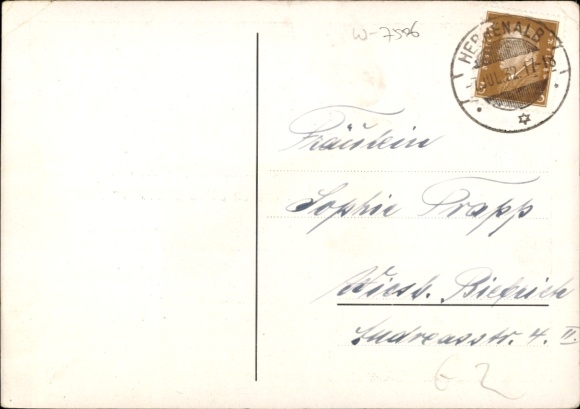 W-7506
HERRENALB
JUL. 32. 17-18
Fräulein
Sophie Trapp
Wiesb. Biebrich
Andreasstr. 4. II.